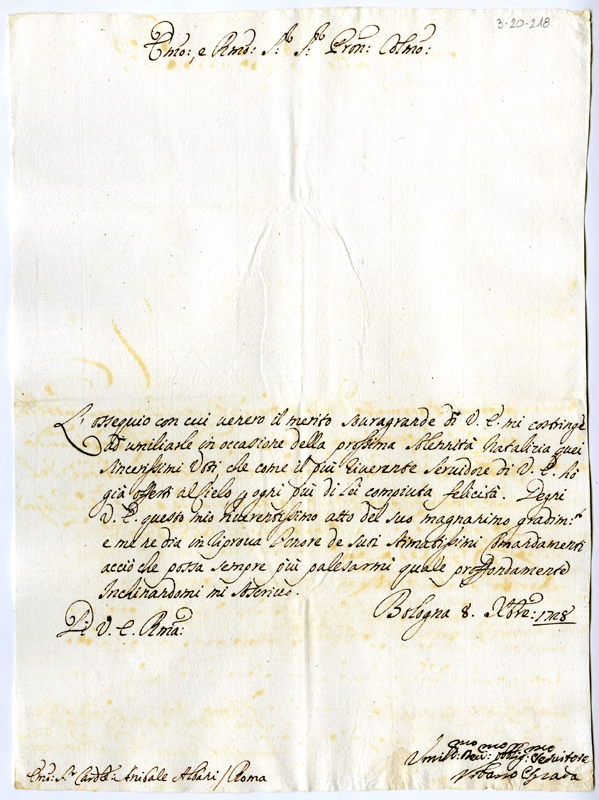 3-20-218
Emo:, e Rmo: Sr. Sr. Pron: Colmo:
L'ossequio con cui venero il merito souragrande di V. E. mi costringe
ad umiliarle in occasione della prossima solennità Natalizia quei
sincerissimi Voti che come il piú riverente servidore di V. E. hò
già offerti al Cielo per ogni piú di lei compiuta felicità. Degni
V. E. questo mio riverentissimo atto del suo magnanimo gradim.to
e me ne dia in riprova l'onore de suoi stimatissimi Comandamenti
acciò che possa sempre piú palesarmi quale proffondamente
Inchinandomi mi ascrivo.
Bologna 8. Xbre: 1728
Di V. E. Rma:
Umilmo: Devmo: Obligmo: Servitore
Emo: Sr Cardle: Anibale Albani / Roma